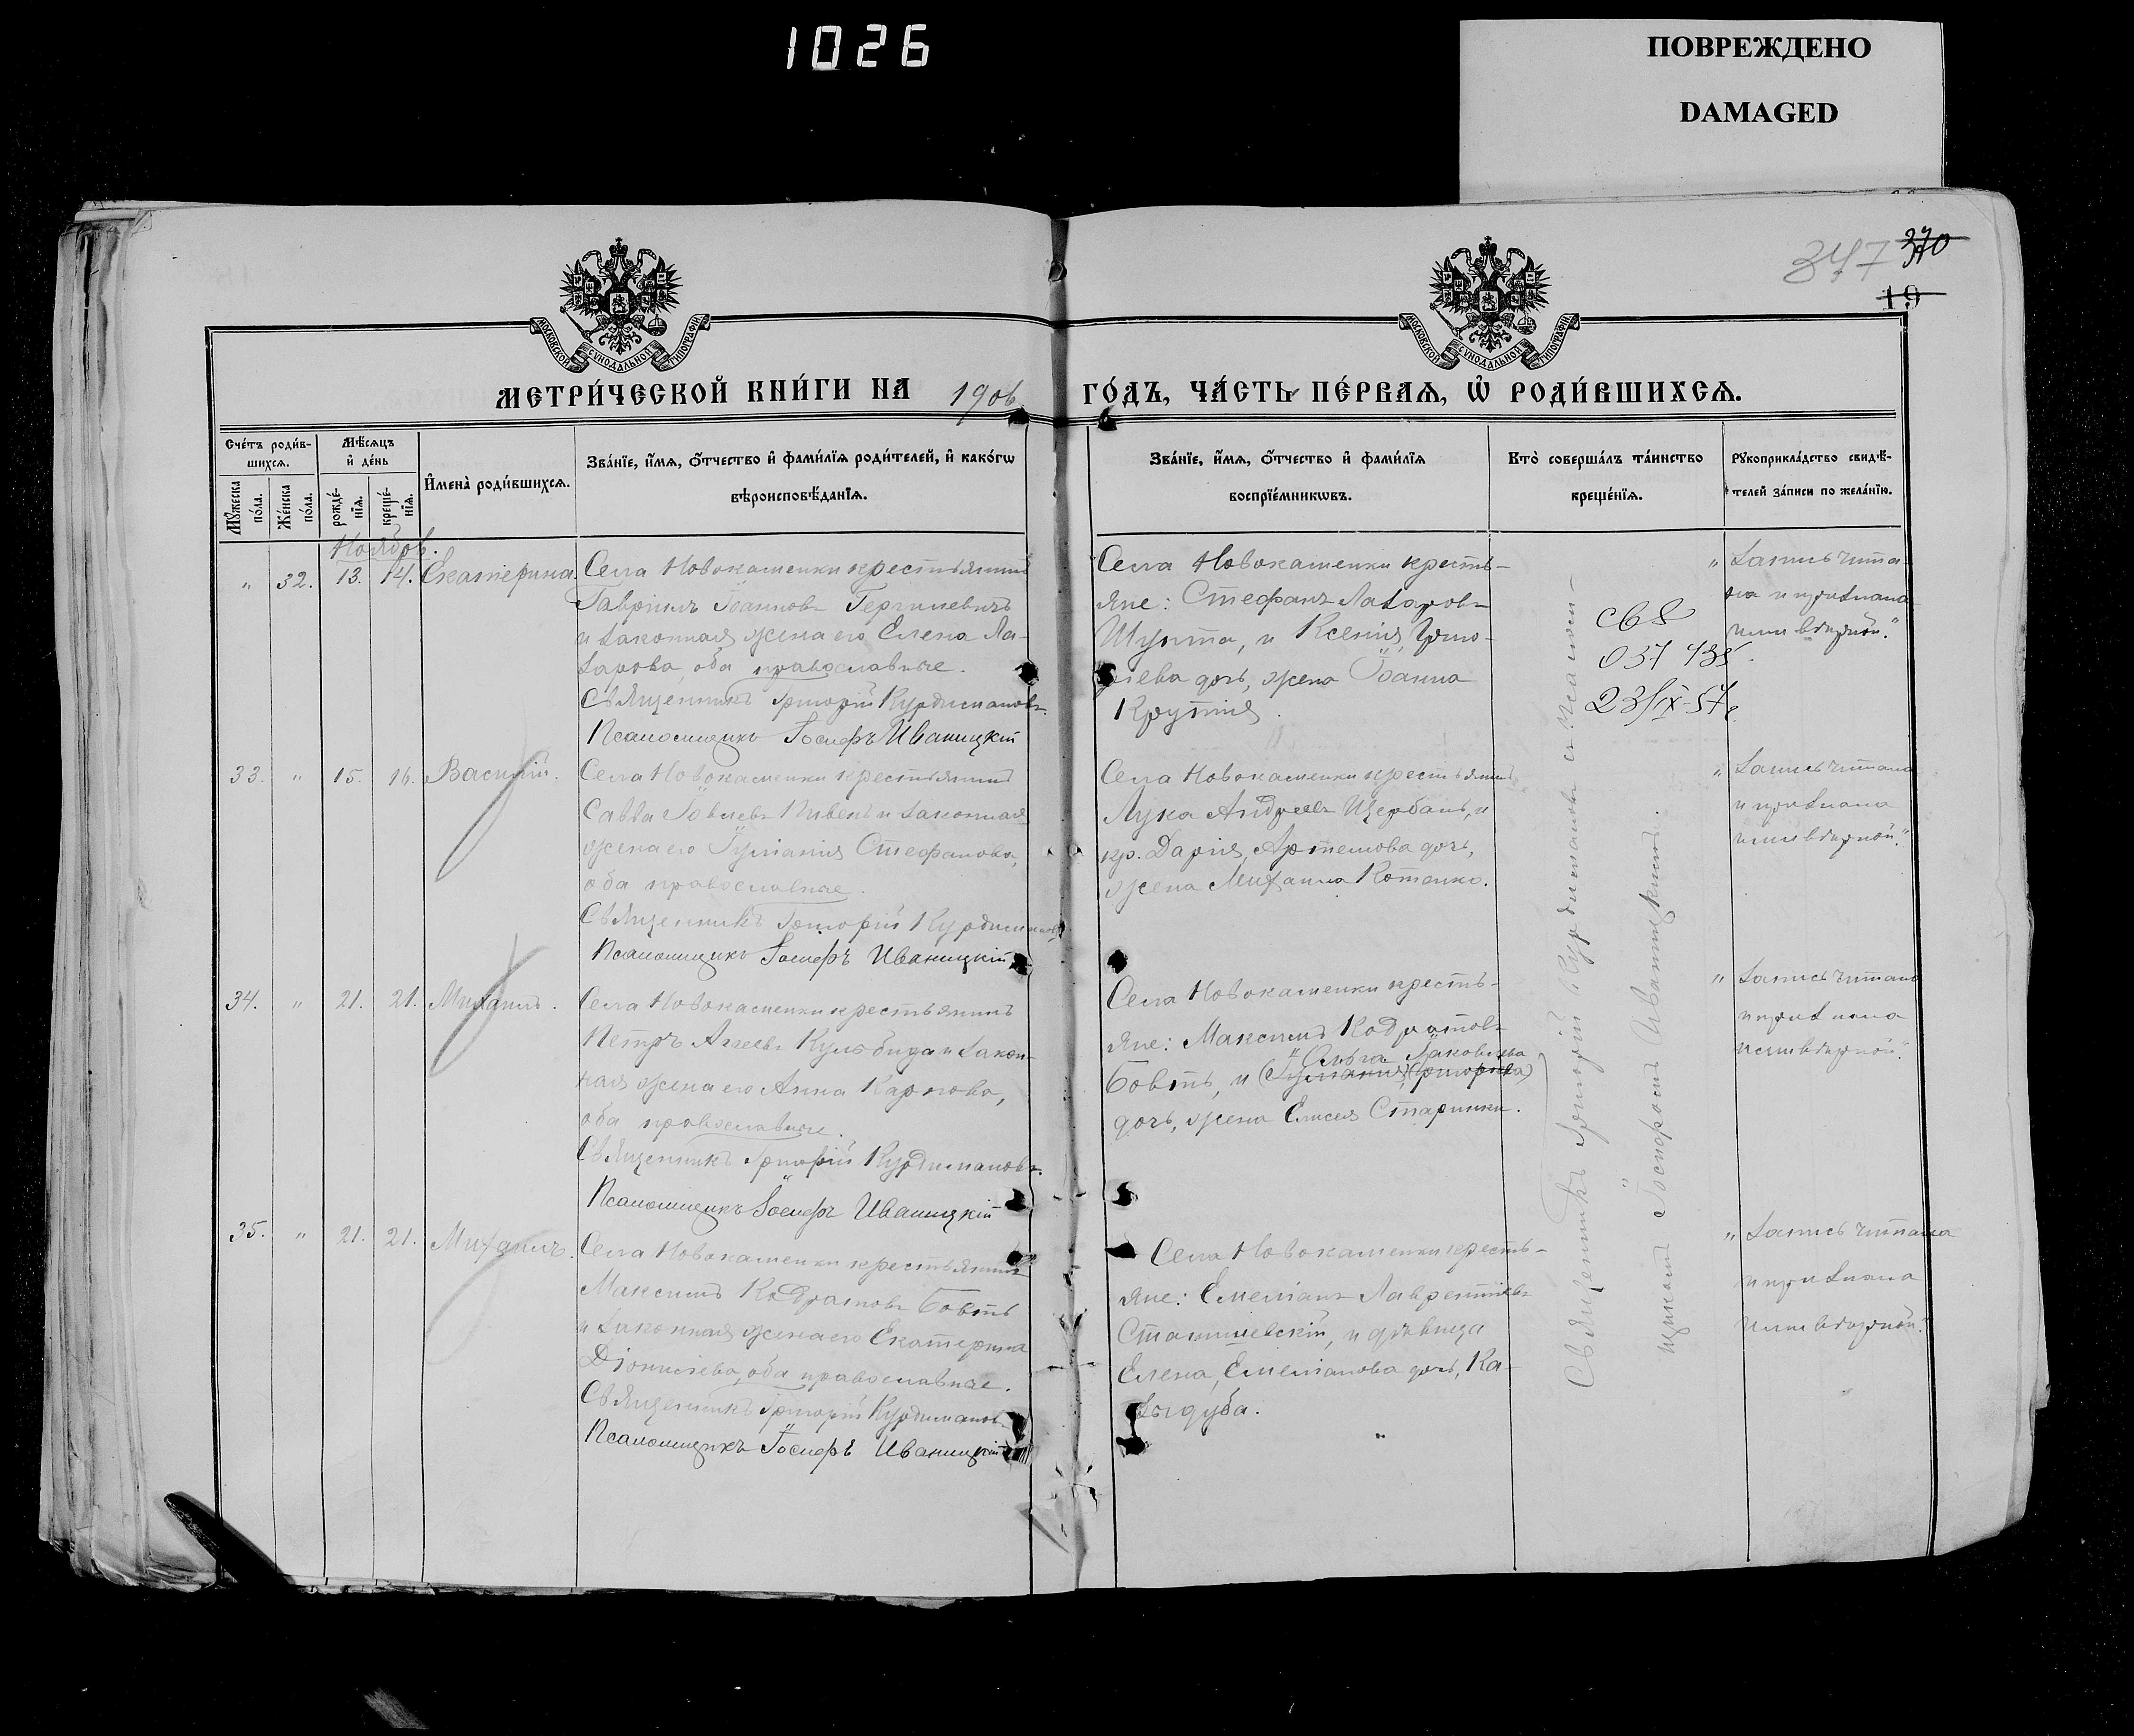 1026
ПОВРЕЖДЕНО
DAMAGED
347 370
19
МОСКОВСКОЙ СѴНОДАЛЬНОЙ ТИПОГРАФІИ
МОСКОВСКОЙ СѴНОДАЛЬНОЙ ТИПОГРАФІИ
МЕТРИ́ЧЕСКОЙ КНИ́ГИ НА 1906 ГО́ДЪ, ЧА́СТЬ ПЕ́РВАЯ, Ѡ҆ РОДИ́ВШИХСЯ.
Сче́тъ роди́в-
шихся.
Мꙋ́жеска по́ла.
Же́нска по́ла.
Мѣ́сяцъ
и҆ де́нь
рожде́-
нїя.
креще́-
нїя.
И҆мена̀ роди́вшихся.
Зва́нїе, и҆́мя, ѻ҆́тчество и҆ фами́лїя роди́телей, и҆ како́гѡ
вѣроисповѣ́данїя.
Зва́нїе, и҆́мя, ѻ҆́тчество и҆ фами́лїя
воспрїе́мникѡвъ.
Кто̀ соверша́лъ та́инство
креще́нїя.
Рꙋкоприкла́дство свидѣ́-
телей за́писи по жела́нїю.
Ноябрь.
" 32. 13. 14. Екатерина.
Села Новокаменки крестьянинъ
Гавріилъ Іоанновъ
и законная жена его Елена Ла-
зарова, оба православные.
Священникъ Григорій Курдимановъ.
Псаломщикъ Іосифъ Иваницкій
Села Новокаменки кресть-
яне: Стефанъ Лазаровъ
Шупта, и Ксенія, Григо-
ріева дочь, жена Іоанна
Крутія.
037 435
23/IX-57г.
" Запись чита-
на и признана
ими вѣрной."
33. " 15. 16. Василій.
Села Новокаменки крестьянинъ
Савва Іовлевъ Пивень и законная
жена его Іуліанія Стефанова,
оба православные.
Священникъ Григорій Курдимановъ
Псаломщикъ Іосифъ Иваницкій
Села Новокаменки крестьянинъ
Лука Андреевъ Щербань, и
кр. Дарія, Артемова дочь,
жена Михаила Котенко.
" Запись читана
и признана
ими вѣрной."
34. " 21. 21. Михаилъ.
Села Новокаменки крестьянинъ
Петръ Агеевъ Кульбида и закон-
ная жена его Анна Карпова,
оба православные.
Священникъ Григорій Курдимановъ.
Псаломщикъ Іосифъ Иваницкій
Села Новокаменки кресть-
яне: Максимъ Кодратовъ
" Ольга Іаковлева
Бовть, и (Іуліанія, Григорьева)
дочь, жена Елисея Старинки.
" Запись читана
и признана
ими вѣрной."
35. " 21. 21. Михаилъ.
Села Новокаменки крестьянинъ
Максимъ Кодратовъ Бовть
и законная жена его Екатерина
Діонисіева, оба православные.
Священникъ Григорій Курдимановъ
Псаломщикъ Іосифъ Иваницкій
Села Новокаменки кресть-
яне: Емеліанъ Лаврентіевъ
Станишевскій, и дѣвица
Елена, Емеліанова дочь, Ка-
зыдуба.
" Запись читана
и признана
ими вѣрной."
Священникъ Григорій Курдимановъ съ псалом-
щикомъ Іосифомъ Иваницкимъ.